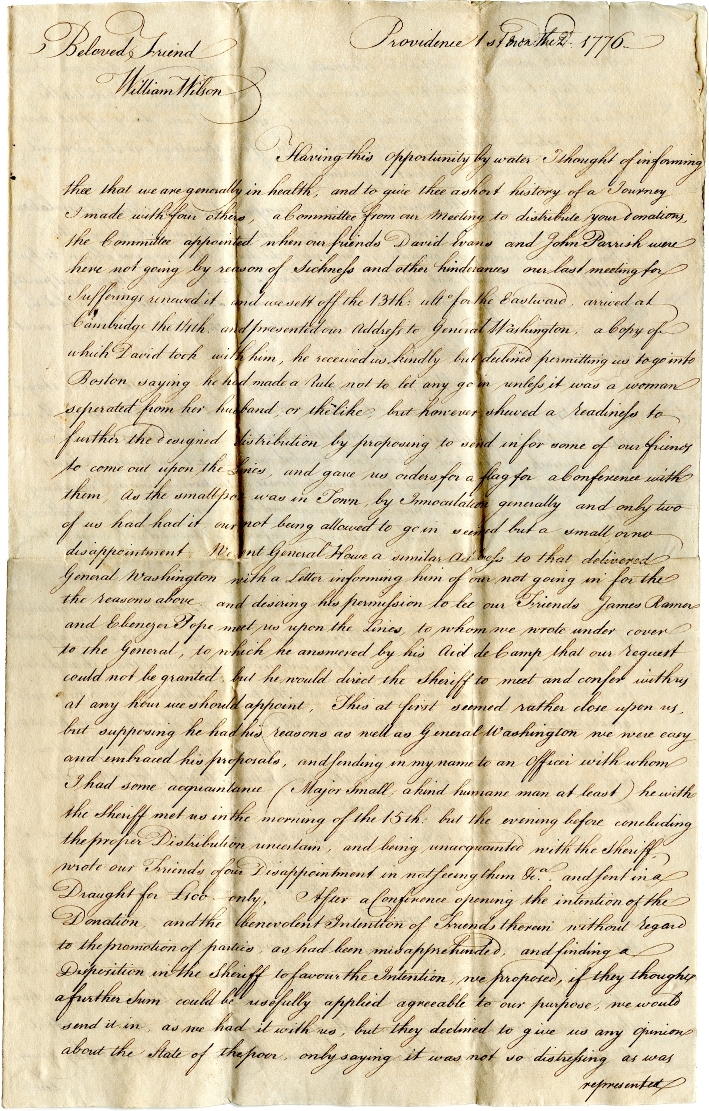 Providence 1st Mon. the 2d. 1776
Beloved Friend
William Wilson
Having this opportunity by water I thought of informing
thee that we are generally in health, and to give thee a short history of a Journey
I made with four others, a Committee from our Meeting to distribute your donations,
the Committee appointed when our friends David Evans and John Parrish were
here not going by reason of Sickness and other hinderances our last meeting for
Sufferings renewed it and we sett off the 13th: ulto. for the Eastward, arrived at
Cambridge the 14th. and presented our Address to General Washington, a Copy of
which David took with him, he received us kindly but declined permitting us to go into
Boston saying he had made a rule not to let any go in unless it was a woman
seperated from her husband, or the like; but however shewed a readiness to
further the designed distribution by proposing to send in for some of our friends
to come out upon the Lines, and gave us orders for a flag for a Conference with
them, As the smallpox was in Town by Innoculation generally and only two
of us had had it our not being allowed to go in seemed but a small or no
disappointment. We sent General Howe a similar Address to that delivered
General Washington with a Letter informing him of our not going in for the
the reasons above, and desiring his permission to let our Friends James Ramer
and Ebenezer Pope meet us upon the Lines, to whom we wrote under cover
to the General, to which he answered by his Aid de Camp that our request
could not be granted, but he would direct the Sheriff to meet and confer with us
at any hour we should appoint, This at first seemed rather close upon us,
but supposing he had his reasons as well as General Washington we were easy
and embraced his proposals, and sending in my name to an Officer with whom
I had some acquaintance (Major Small, a kind humane man at least) he with
the Sheriff met us in the morning of the 15th: but the evening before concluding
the proper Distribution uncertain, and being unacquanted with the Sheriff,
wrote our Friends of our Disappointment in not seeing them &ca. and sent in a
Draught for £100 only, After a Conference opening the intention of the
Donation, and the benevolent Intention of Friends therein without regard
to the promotion of parties, as had been misapprehended, and finding a
Disposition in the Sheriff to favour the Intention, we proposed, if they thought
a further Sum could be usefully applied agreable to our purpose, we would
send it in, as we had it with us, but they declined to give us any opinion
about the State of the poor, only saying it was not so distressing as was
represented